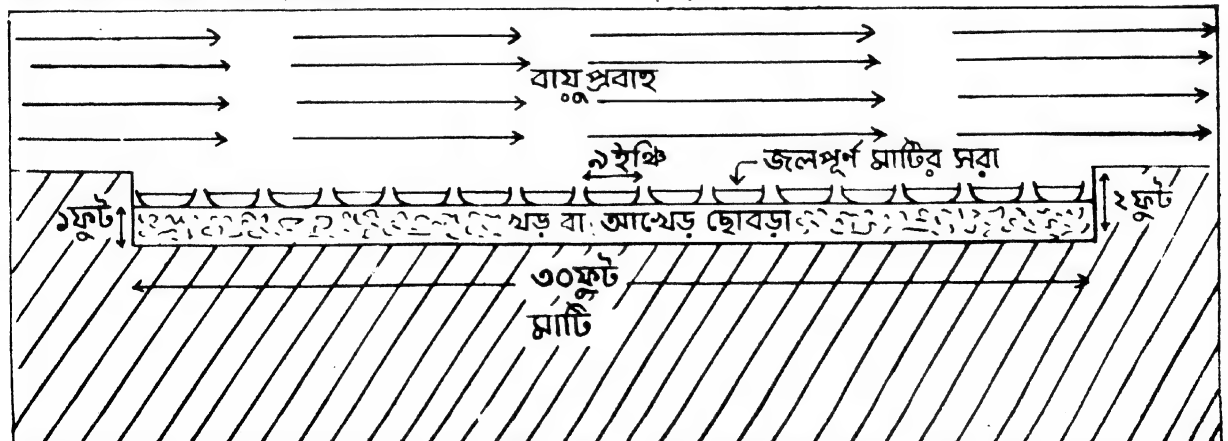 বায়ু প্রবাহ
৯ ইঞ্চি
জলপূর্ণ মাটির সরা
১ ফুট
খড় বা আখের ছোবড়া
২ ফুট
৩০ ফুট
মাটি